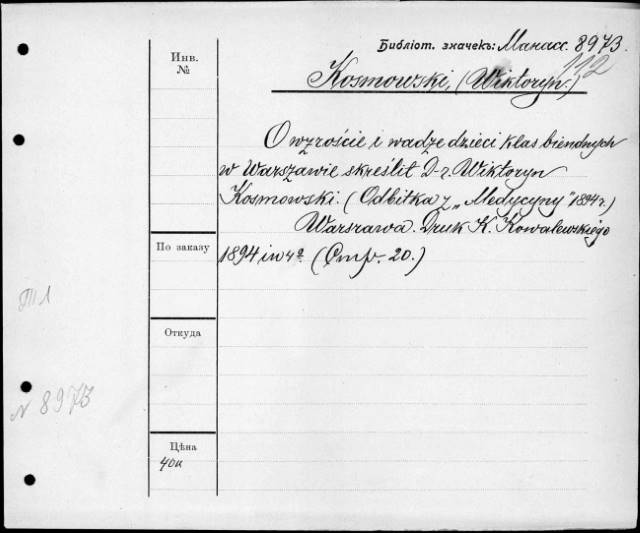 Библіот. значекъ: Манасс. 8973.
112
Инв.
№
Kosmowski, (Wiktoryn.)
O wzroście i wadze dzieci klas biendnych
w Warszawie skreślit D-r. Wiktoryn
Kosmowski. (Odbitka z „Medycyny" 1894 r.)
Warszawa. Druk K. Kowalewskiego
По заказу
1894 in 4º. (Стр. 20.)
Откуда
N 8973
Цѣна
40к